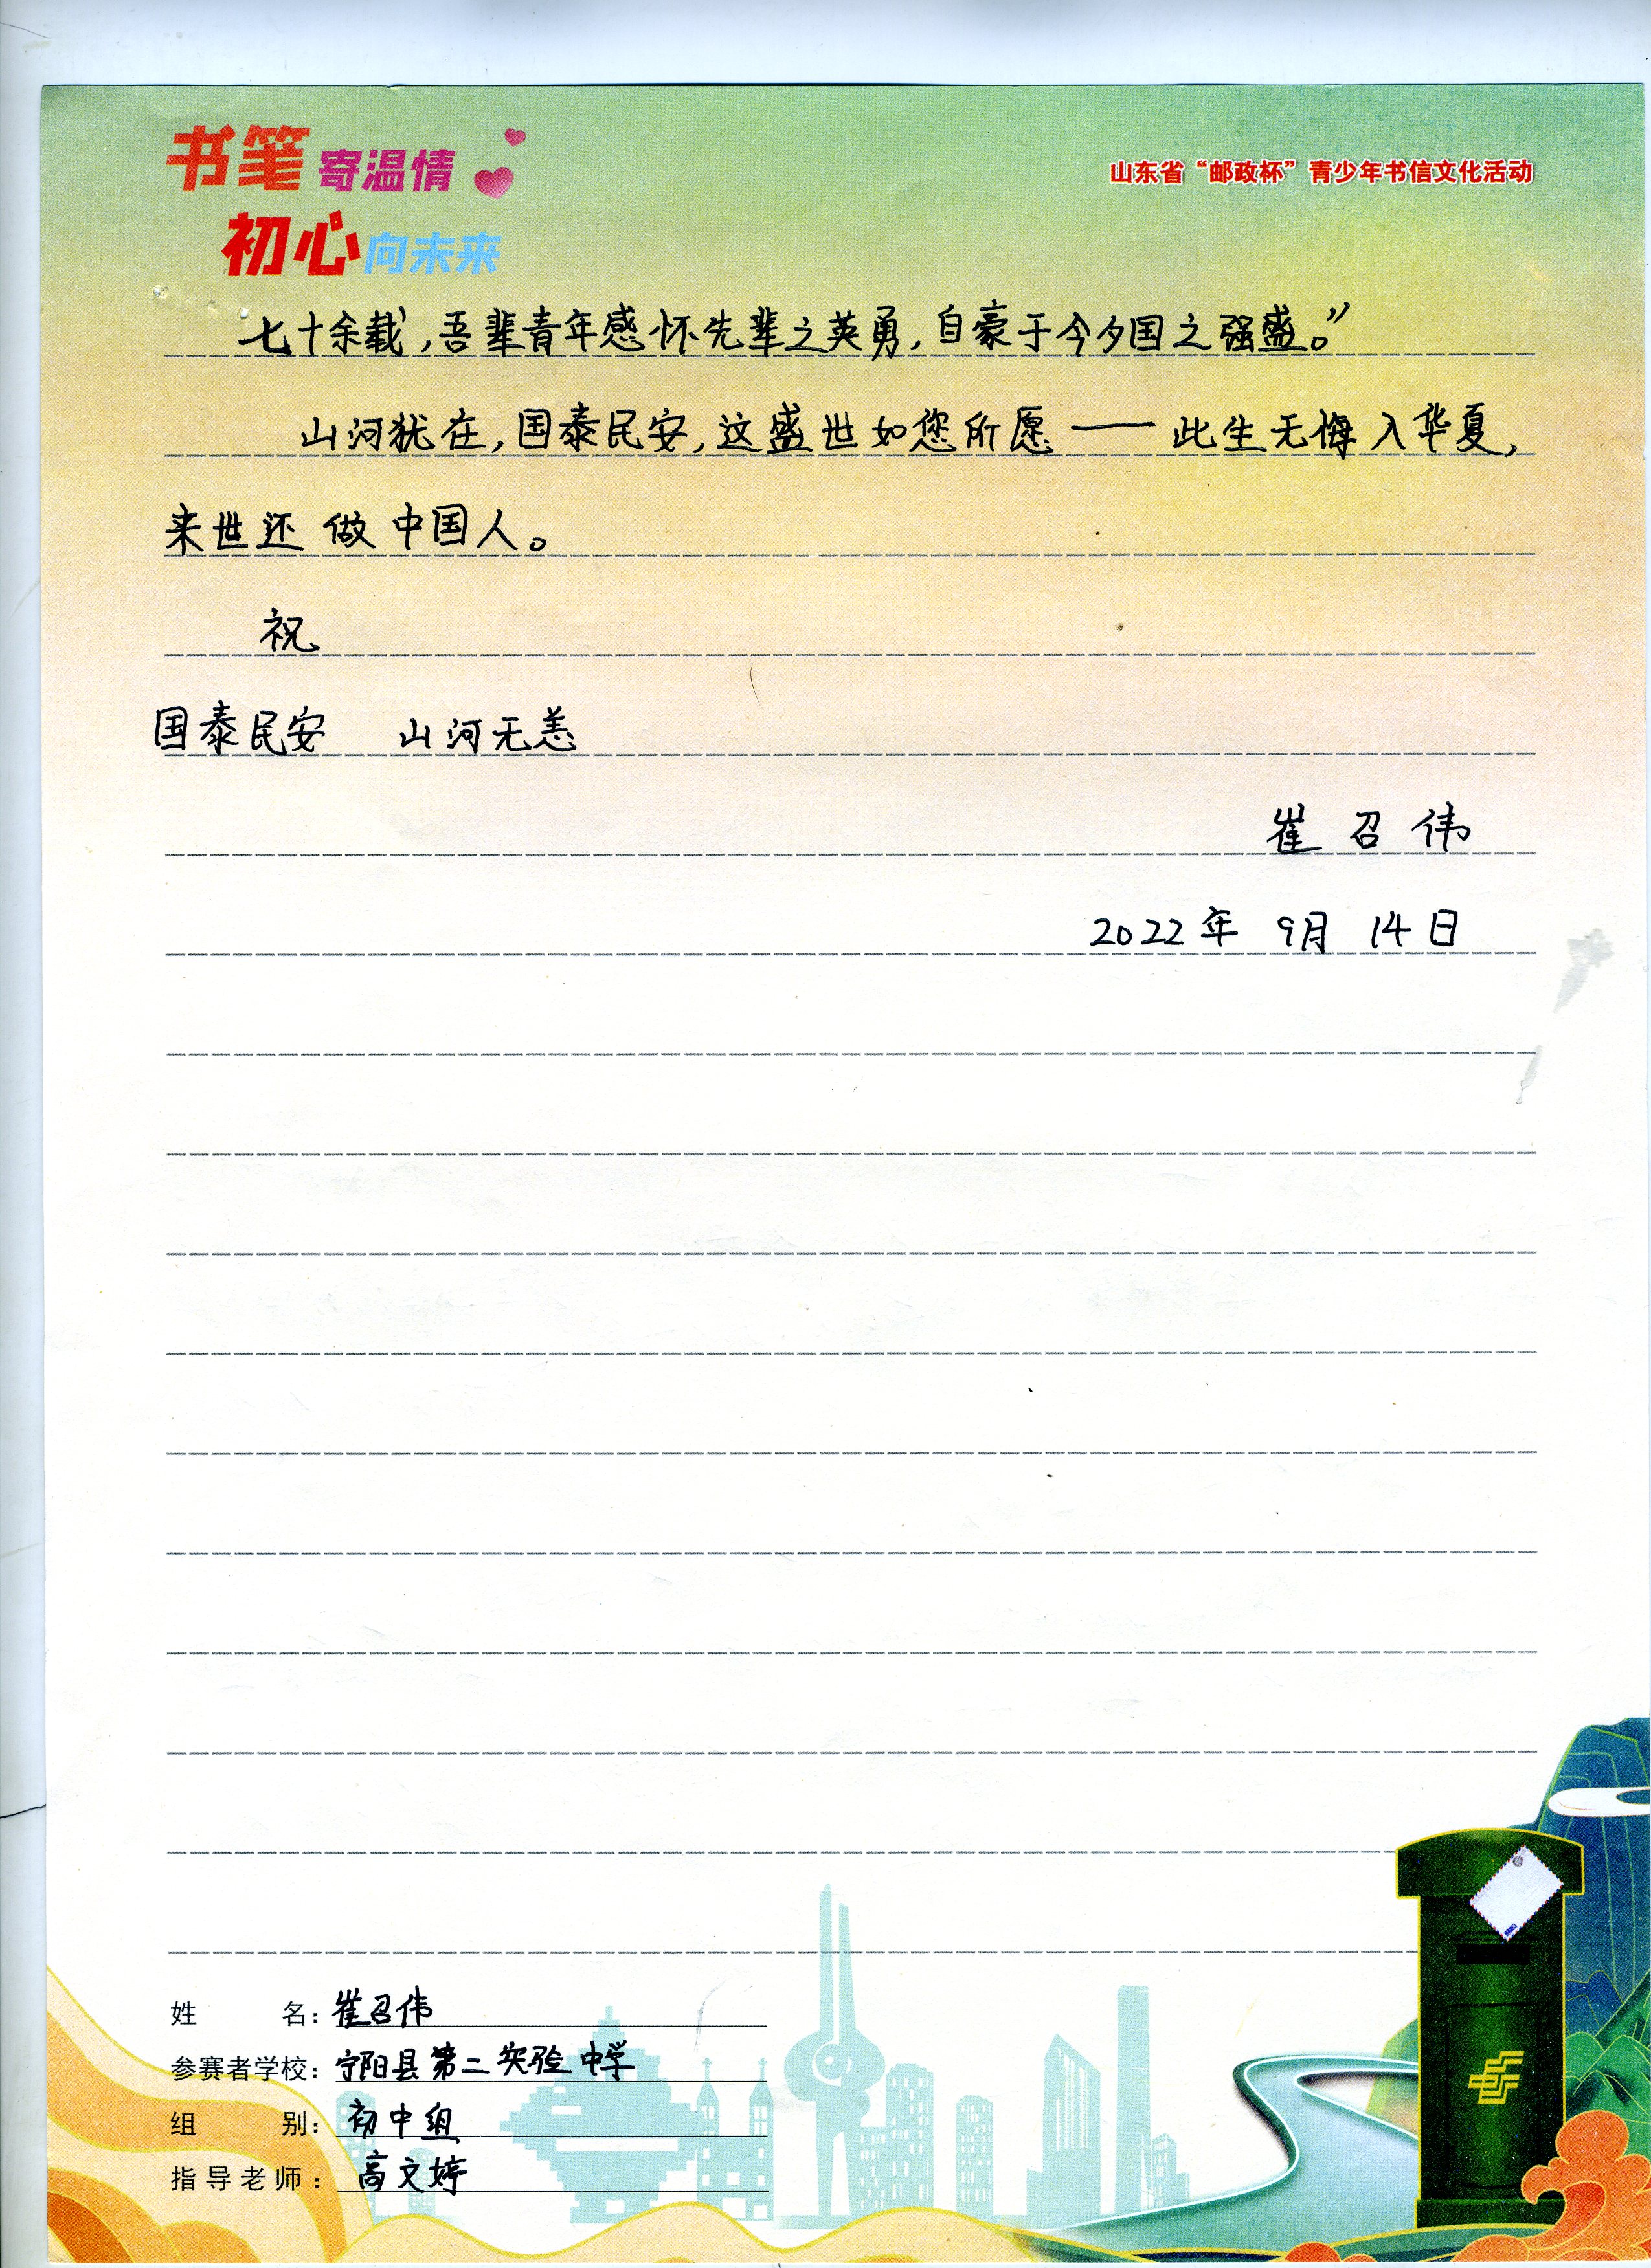 书笔寄温情
山东省“邮政杯”青少年书信文化活动
初心向未来
“七十余载，吾辈青年感怀先辈之英勇，自豪于今夕国之强盛。”
山河犹在，国泰民安，这盛世如您所愿——此生无悔入华夏，
来世还做中国人。
祝
国泰民安 山河无恙
崔召伟
2022年 9月 14日
姓名：崔召伟
参赛者学校：宁阳县第二实验中学
组别：初中组
指导老师：高文婷